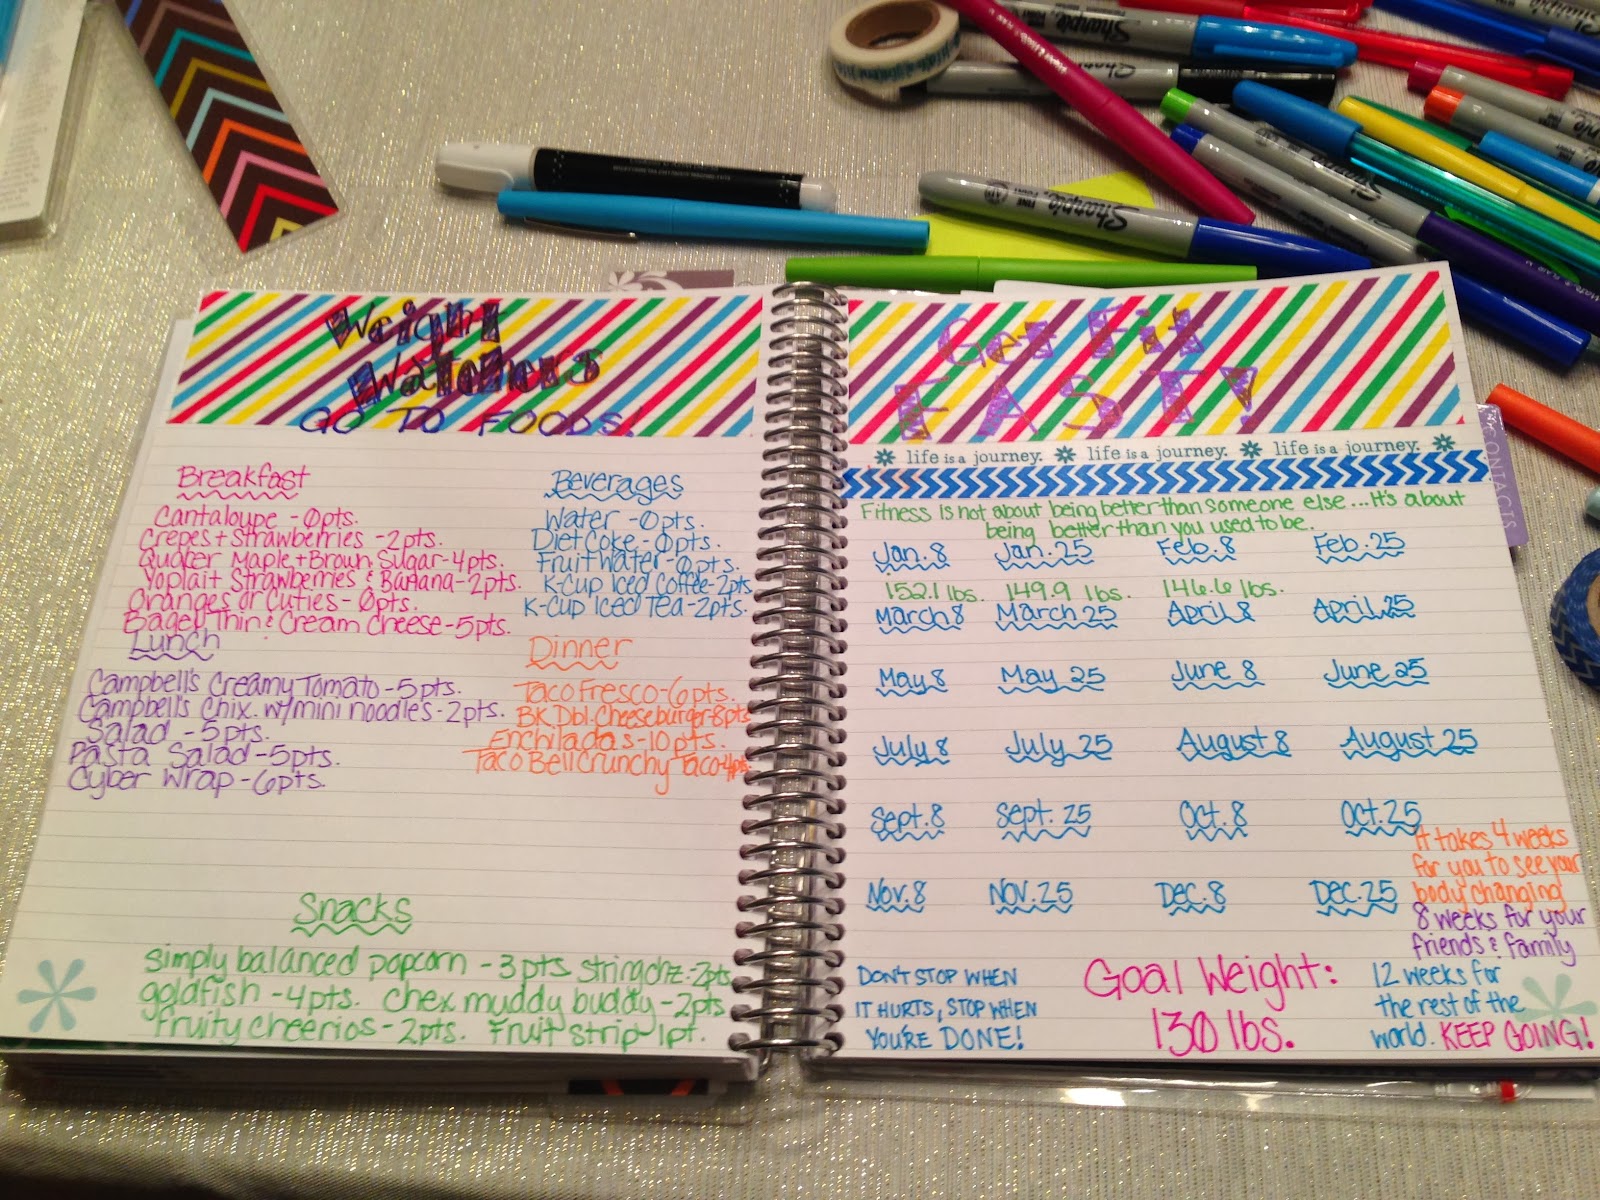 Sharpie
Sharpie
Sharpie
Weight
Watchers
GO TO FOODS!
Breakfast
Cantaloupe - 0pts.
Crepes + Strawberries - 2pts.
Quaker Maple + Brown Sugar - 4pts.
Yoplait Strawberries & Banana - 2pts.
Oranges or Cuties - 0pts.
Bagel Thin & Cream Cheese - 5pts.
Beverages
Water - 0pts.
Diet Coke - 0pts.
Fruit Water - 0pts.
K-Cup Iced Coffee - 2pts
K-Cup Iced Tea - 2pts.
Lunch
Campbell's Creamy Tomato - 5pts.
Campbell's Chix. w/mini noodles - 2pts.
Salad - 5pts.
Pasta Salad - 5pts.
Cyber Wrap - 6pts.
Dinner
Taco Fresco - 6pts.
BK Dbl. Cheeseburger - 8pts
Enchiladas - 10pts.
Taco Bell Crunchy Taco - 4pts.
Snacks
Simply balanced popcorn - 3pts string chz. - 2pts
goldfish - 4pts. chex muddy buddy - 2pts
fruity cheerios - 2pts. Fruit strip 1pt.
Get Fit
FAST!
life is a journey. life is a journey. life is a journey.
Fitness is not about being better than someone else... It's about
being better than you used to be.
Jan. 8 Jan. 25 Feb. 8 Feb. 25
152.1 lbs. 149.9 lbs. 146.6 lbs.
March 8 March 25 April 8 April 25
May 8 May 25 June 8 June 25
July 8 July 25 August 8 August 25
Sept. 8 Sept. 25 Oct. 8 Oct. 25
Nov. 8 Nov. 25 Dec. 8 Dec. 25
It takes 4 weeks
for you to see your
body changing
8 weeks for your
friends & family
12 weeks for
the rest of the
world. KEEP GOING!
DON'T STOP WHEN
IT HURTS, STOP WHEN
YOU'RE DONE!
Goal Weight:
130 lbs.
CONTACTS